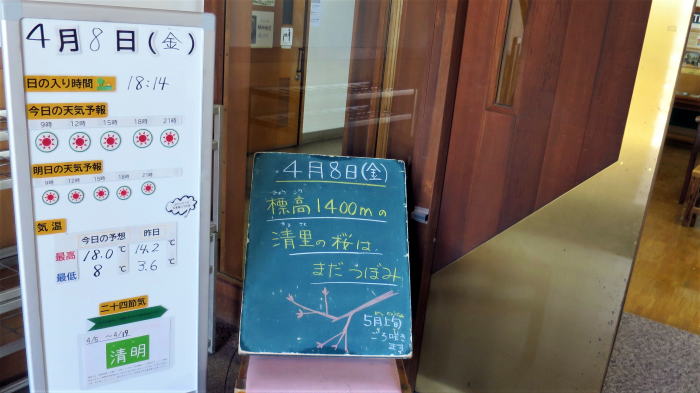 4月8日(金)
日の入り時間 18:14
今日の天気予報
9時 12時 15時 18時 21時
明日の天気予報
9時 12時 15時 18時 21時
気温
今日の予想 昨日
最高 18.0℃ 14.2℃
最低 8℃ 3.6℃
二十四節気
清明
4月8日(金)
標高1400mの
清里の桜は、
まだつぼみ
5月上旬
ごろ咲き
ます